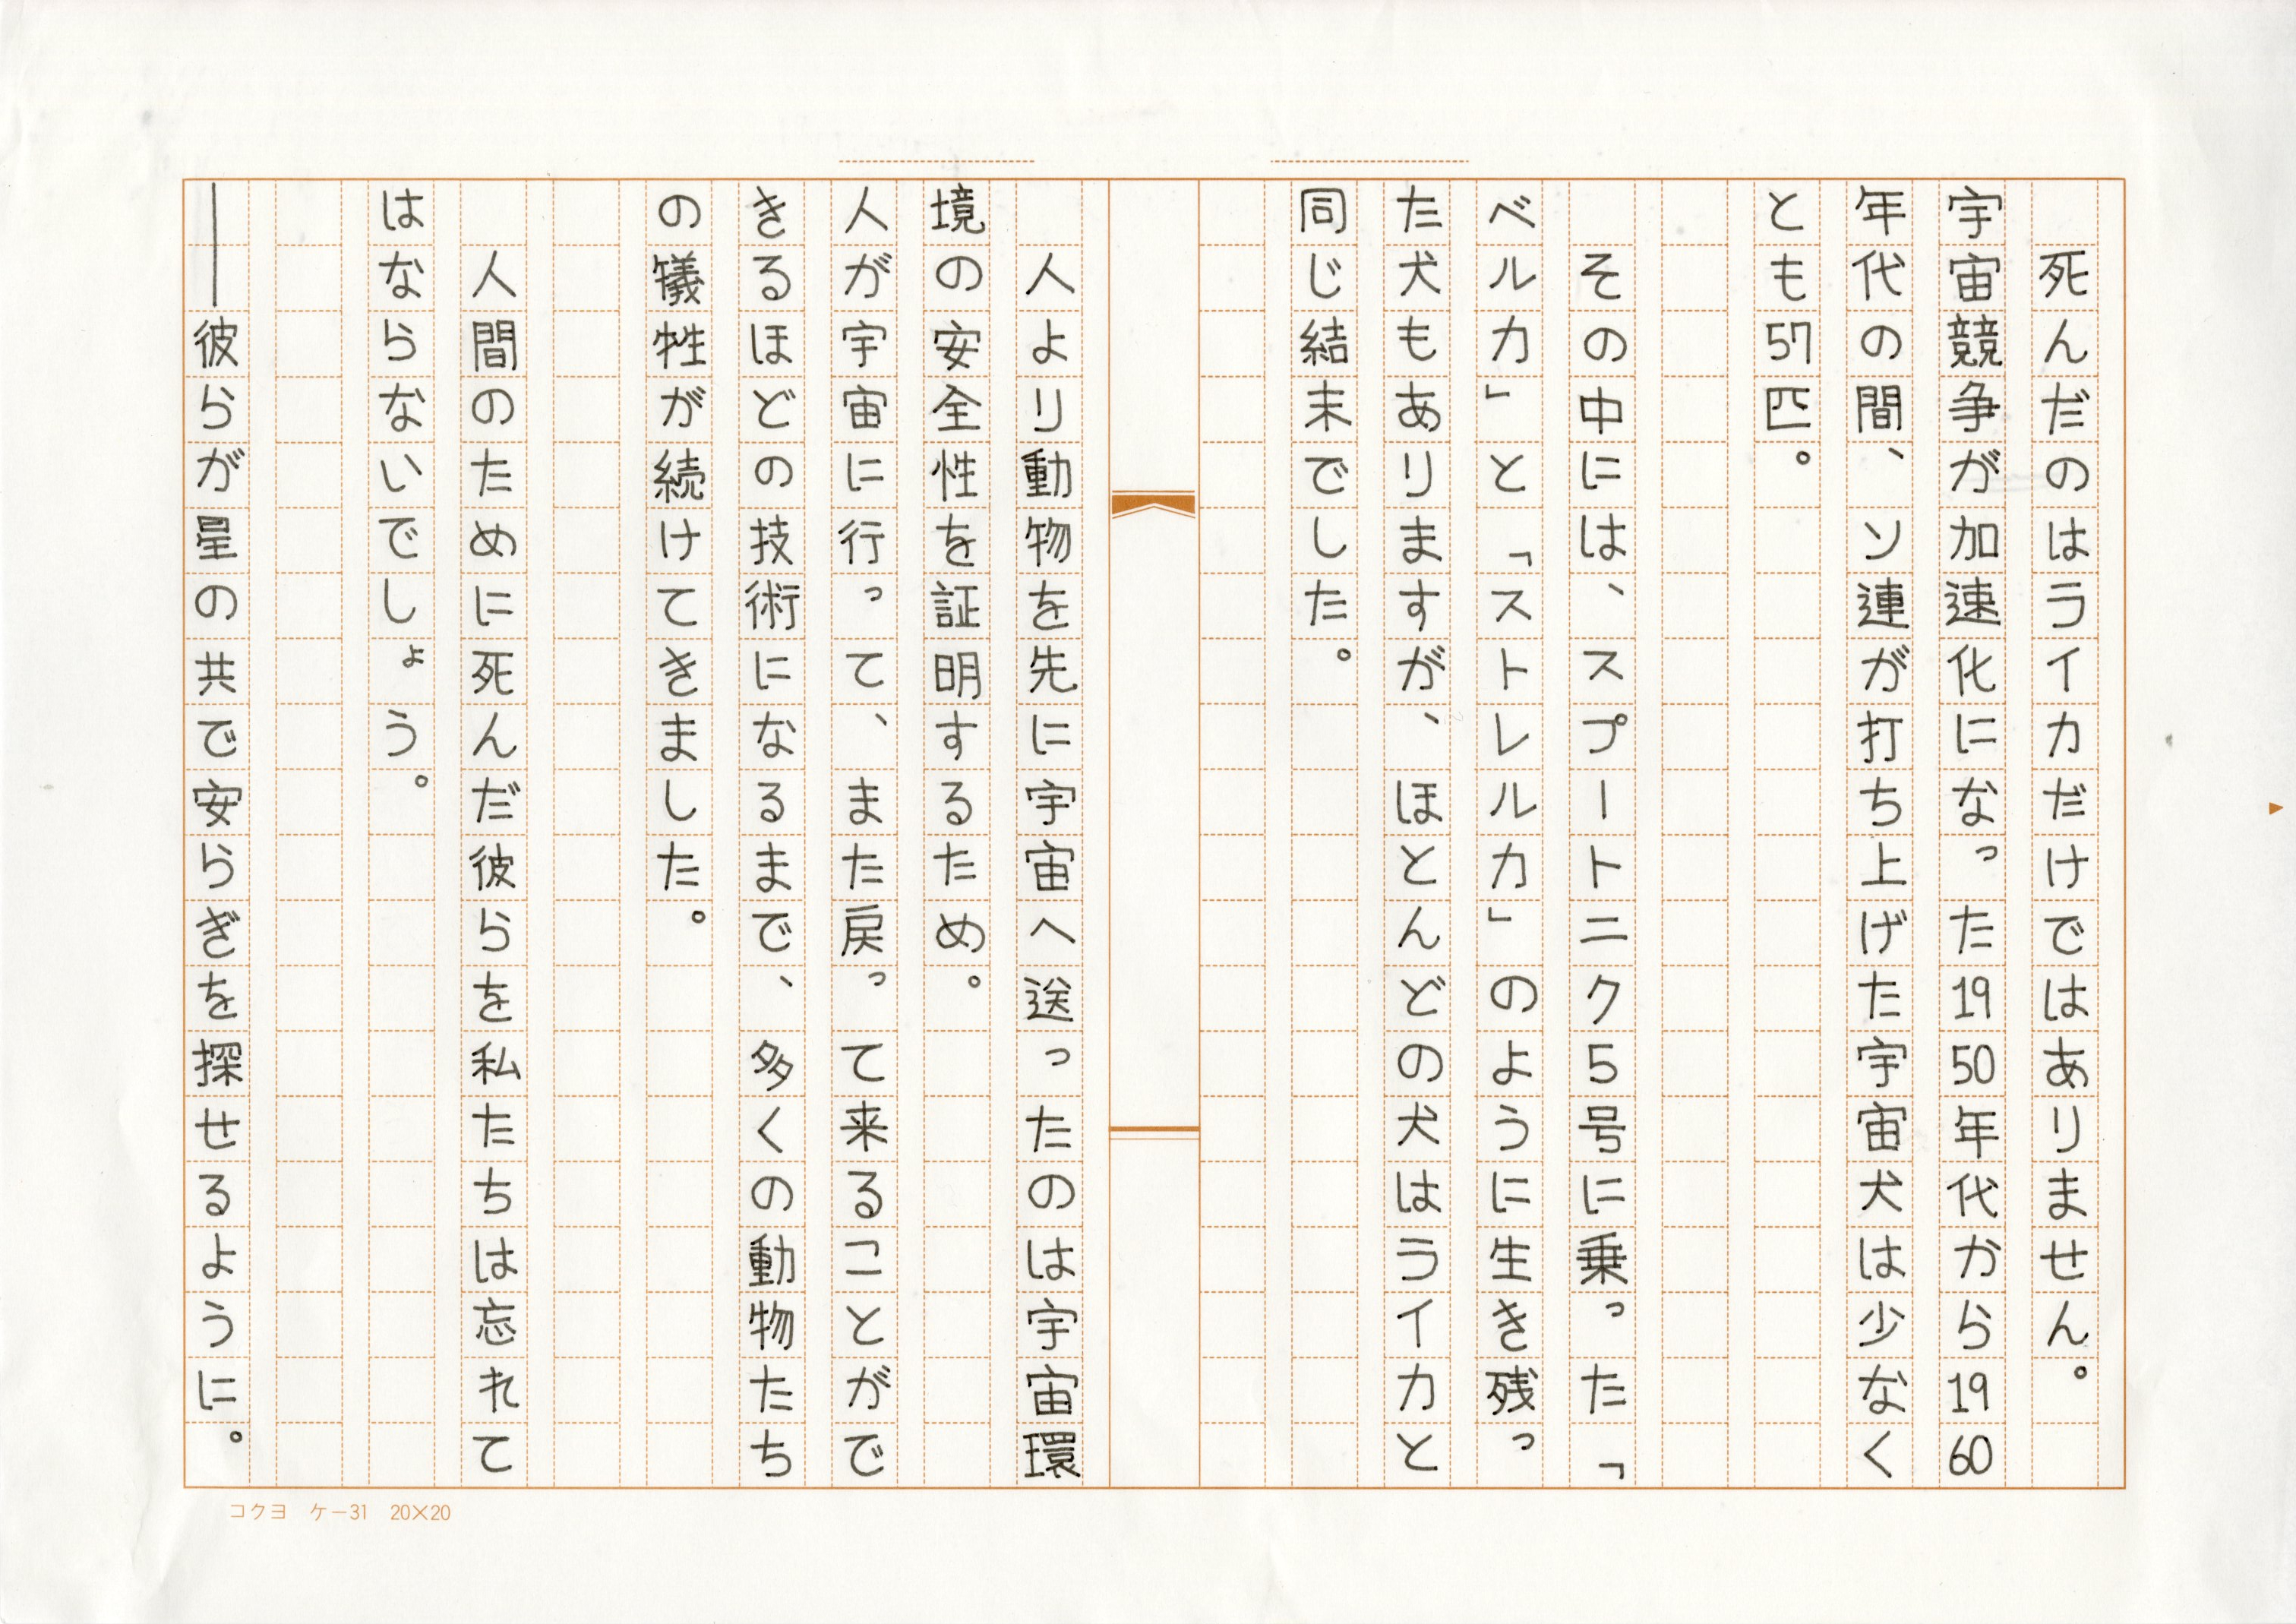 死んだのはライカだけではありません。
宇宙競争が加速化になった1950年代から1960
年代の間、ソ連が打ち上げた宇宙犬は少なく
とも57匹。
その中には、スプートニク5号に乗った「
ベルカ」と「ストレルカ」のように生き残っ
た犬もありますが、ほとんどの犬はライカと
同じ結末でした。
人より動物を先に宇宙へ送ったのは宇宙環
境の安全性を証明するため。
人が宇宙に行って、また戻って来ることがで
きるほどの技術になるまで、多くの動物たち
の犠牲が続けてきました。
人間のために死んだ彼らを私たちは忘れて
はならないでしょう。
――彼らが星の共で安らぎを探せるように。
コクヨ ケー31 20×20